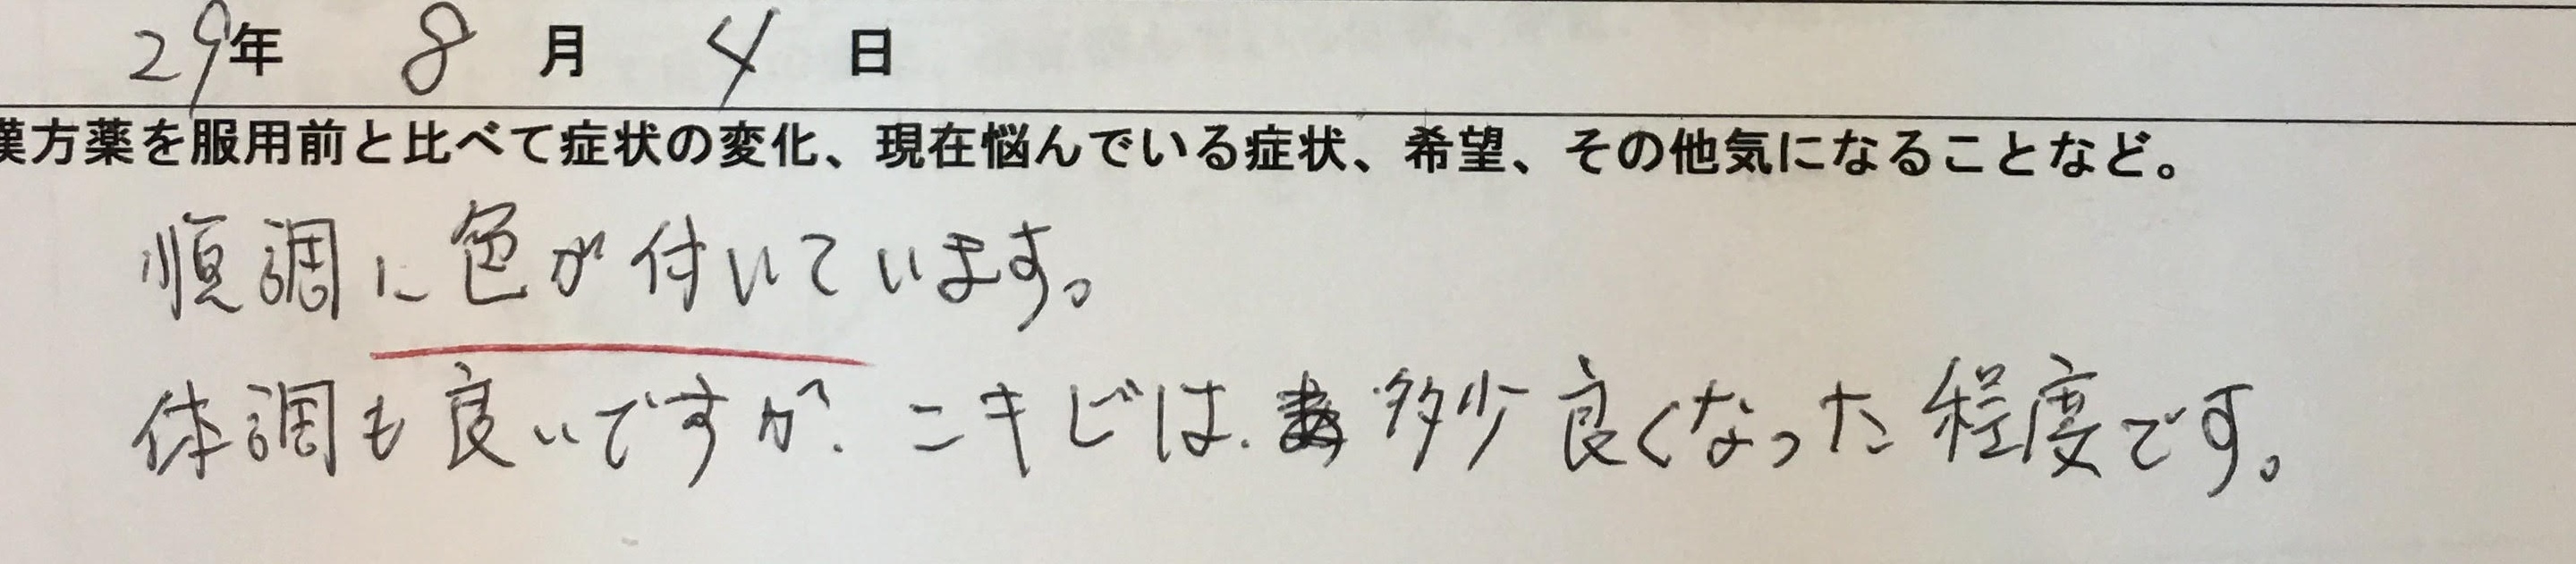 29年 8月 4日
漢方薬を服用前と比べて症状の変化、現在悩んでいる症状、希望、その他気になることなど。
順調に色が付いています。
体調も良いですが、ニキビは、多少良くなった程度です。